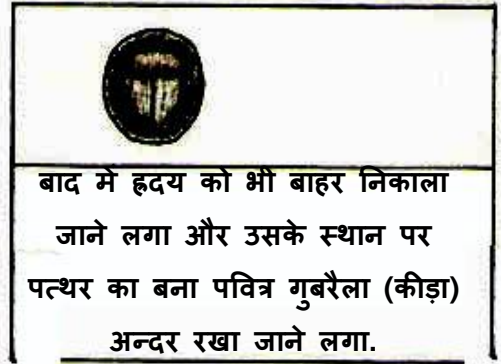 बाद मे ह्रदय को भी बाहर निकाला
जाने लगा और उसके स्थान पर
पत्थर का बना पवित्र गुबरैला (कीड़ा)
अन्दर रखा जाने लगा.